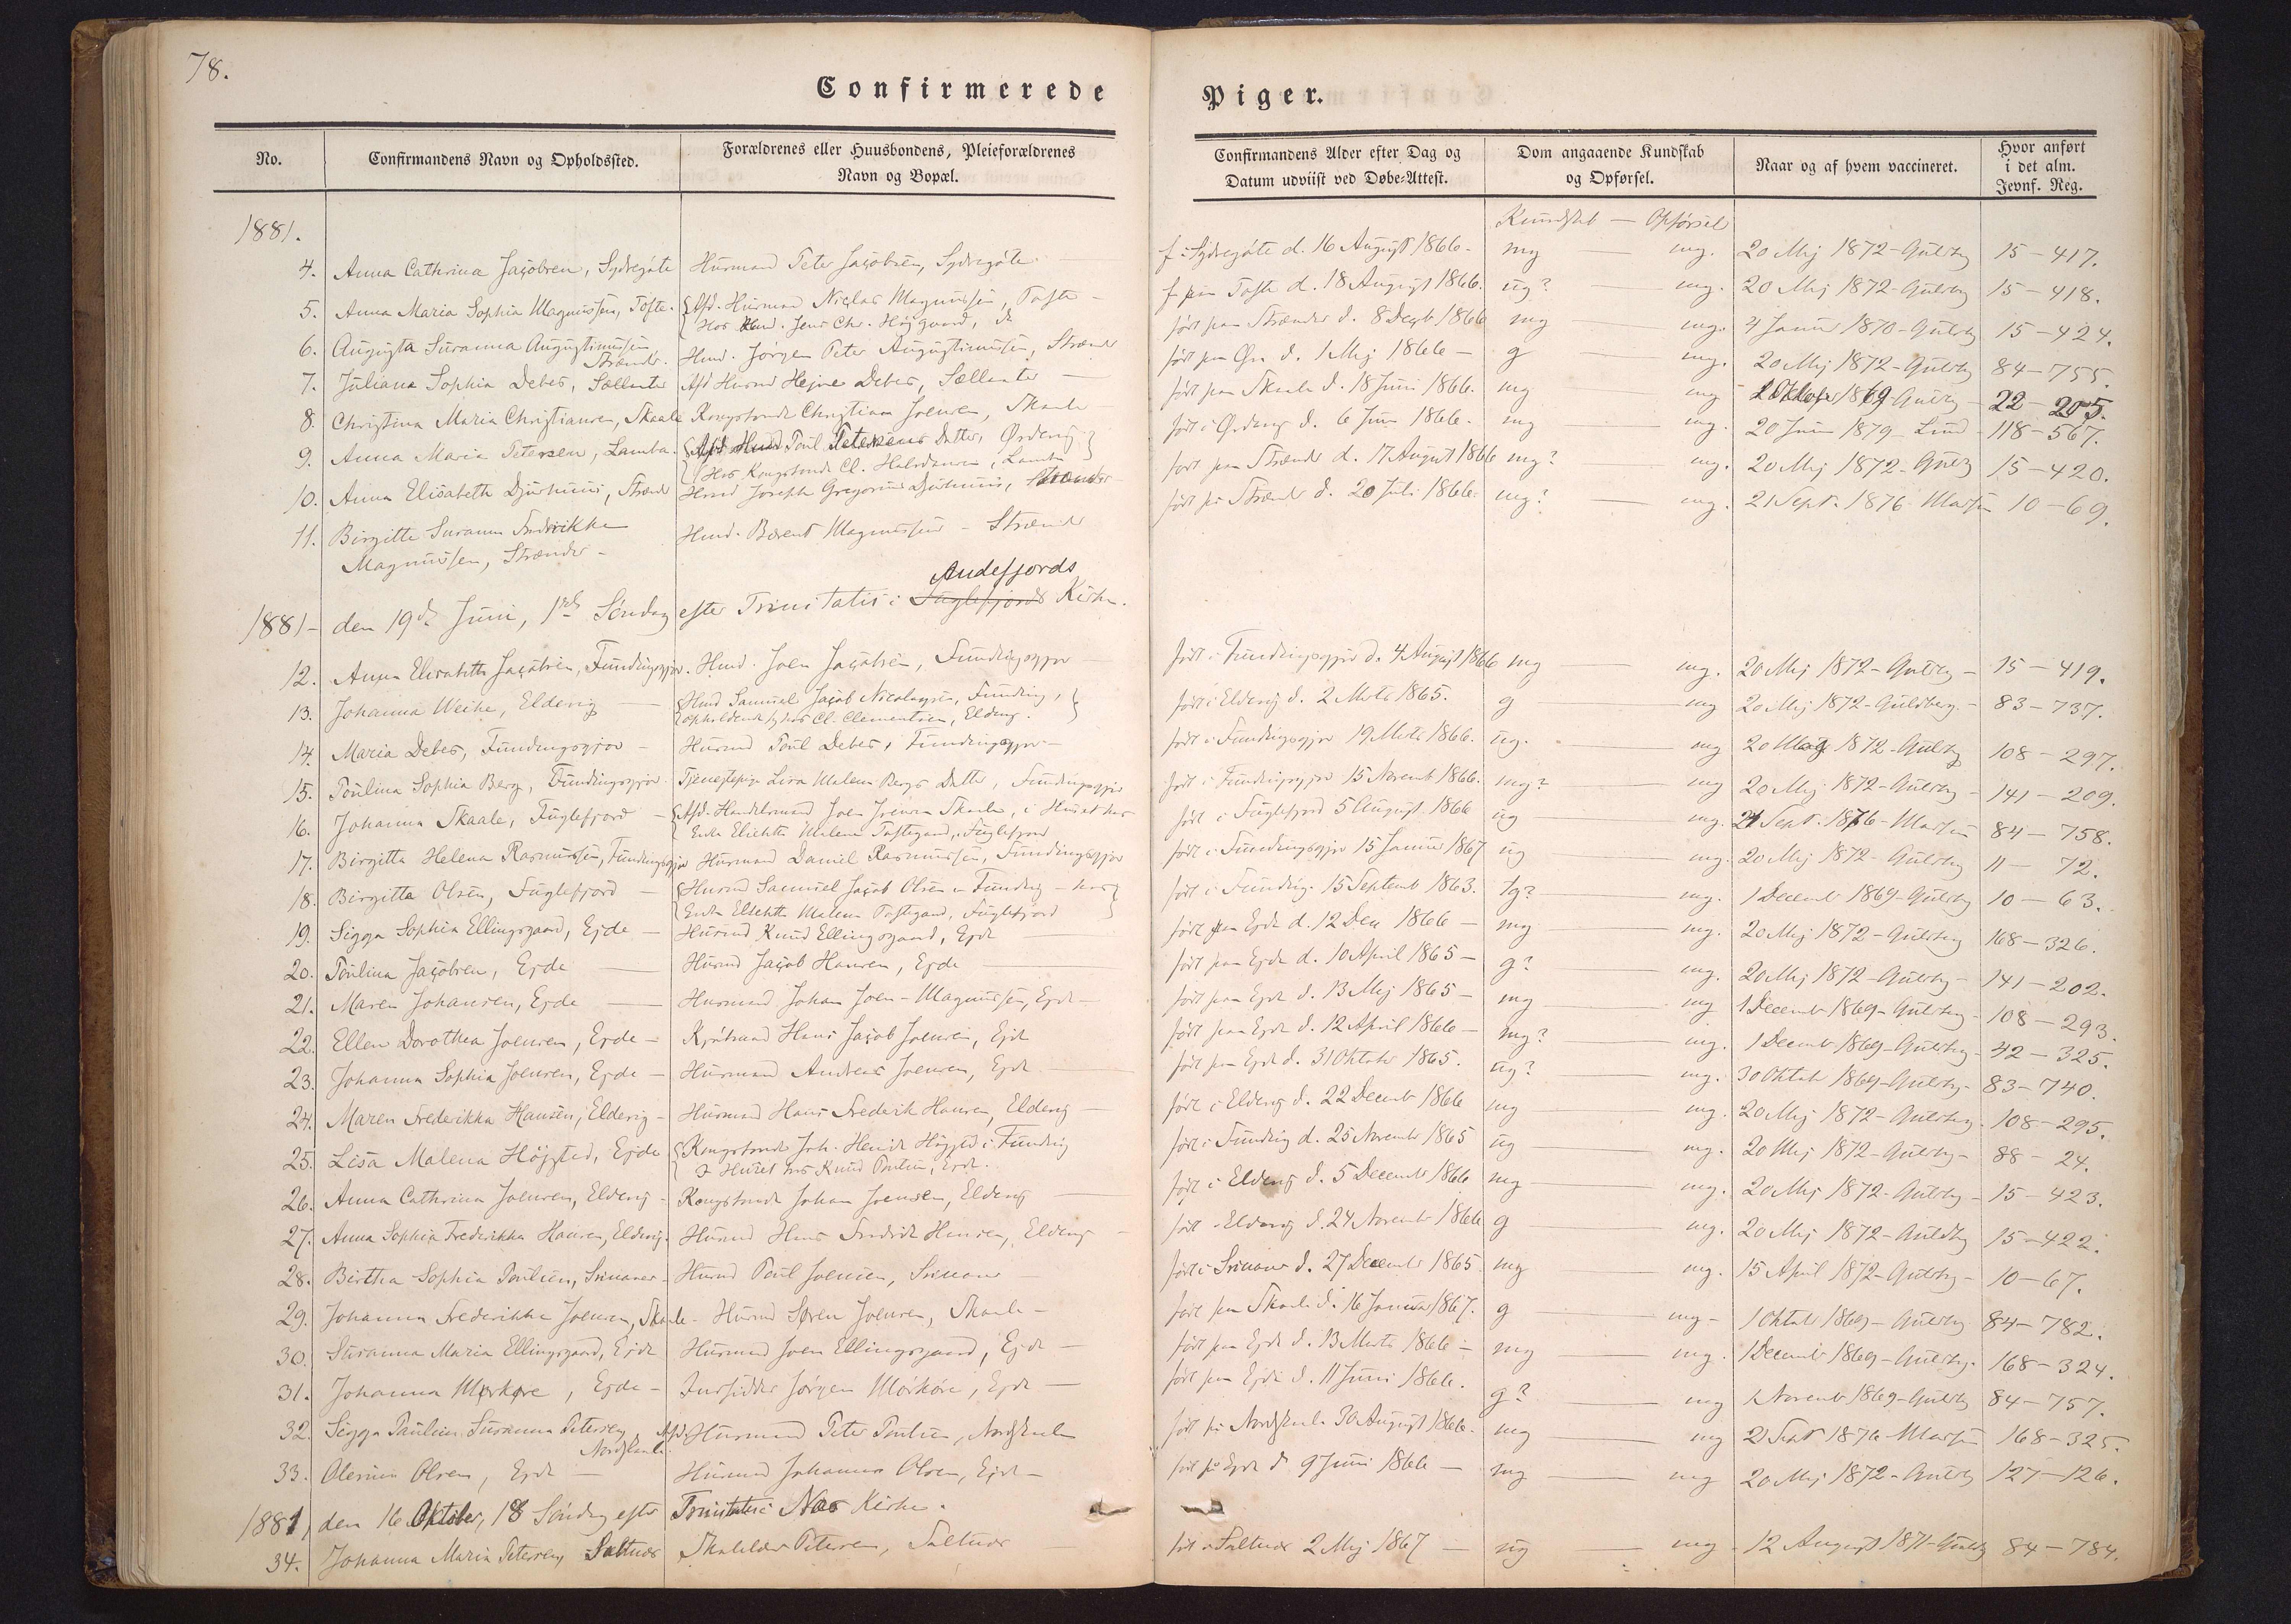 78.
Confirmerede
Piger.
No.
Confirmandens Navn og Opholdssted.
Forældrenes eller Huusbondens, Pleieforældrenes
Navn og Bopæl.
Confirmandens Alder efter Dag og
Datum udviist ved Døbe-Attest.
Dom angaaende Kundskab
og Opførsel.
Naar og af hvem vaccineret.
Hvor anført
i det alm.
Jevnf. Reg.
1881.
Kundskab — Opførsel
4. Anna Cathrina Jacobsen, Sydregöte Husmand Peter Jacobsen, Sydregöte f. i Sydregöte d. 16 August 1866. mg — mg. 20 Mej 1872 - Guldbg 15 - 417.
5. Anna Maria Sophia Magnussen, Tofte. Afd. Husmand Niclas Magnussen, Tofte -
Hos Jens Chr. Højgaard, f. paa Tofte d. 18 August 1866. ug? — mg. 20 Mej 1872 - Guldbg 15 - 418.
6. Augusta Susanna Augustinussen
Strænder. Husmd. Jørgen Peter Augustinussen, Strænder født paa Strænder d. 8 Decbr 1866 mg — mg. 4 Januar 1870 - Guldbg 15 - 424.
7. Juliana Sophia Debes, Sælletter Afd Husmd Hejne Debes, Sælletter født paa d. 1 Mej 1866 - g — mg. 20 Mej 1872 - Guldbg 84 - 755.
8. Christina Maria Christiansen, Skaale Kongsbonde Christian Joensen, Skaale født paa Skaale d. 18 Juni 1866. mg — mg 1 Oktober 1869 - Guldbg 22 - 205.
9. Anna Maria Petersen, Lamba. Afd Husmd Poul Petersens Datter, Ørdevig
Hos Kongsbonde Cl. Lamba født i Ørdevig d. 6 Juni 1866. mg — mg. 20 Juni 1879 - Lund 118 - 567.
10. Anna Elisabeth Djurhuus, Strænder Husmd Joseph Gregorius Djurhuus, Strænder født paa Strænder d. 17 August 1866 mg? — mg. 20 Mej 1872 - Guldbg 15 - 420.
11. Birgitte Susanna Fredrikke
Magnussen, Strænder - Husmd. Berent Magnussen - Strænder født på Strænder d. 20 Juli 1866. mg? — mg. 21 Sept. 1876 10 - 69.
1881 - den 19de Juni, 1ste Søndag efter Trinitatis i Fuglefjords Andefjords Kirke.
12. Anna Elisabeth Jacobsen, Fundingsgjov. Husmd. Joen Jacobsen, Fundingsgjov født i Fundingsgjov d. 4 August 1866 mg — mg. 20 Mej 1872 - Guldbg - 15 - 419.
13. Johanna Weihe, Eldevig Husmd Samuel Jacob Nicolaysen, Funding,
opholdende sig hos Cl. Clementsen, Eldevig. født i Eldevig d. 2 Marts 1865. g — mg 20 Mej 1872 - Guldberg - 83 - 737.
14. Maria Debes, Fundingsgjov - Husmd Poul Debes, Fundingsgjov - født i Fundingsgjov 19 Marts 1866. ug. — mg 20 Mej 1872 - Guldbg 108 - 297.
15. Poulina Sophia Berg, Fundingsgjov Tjenestepige Lisa Malena Bergs Datter, Fundingsgjov født i Fundingsgjov 15 Novemb 1866. mg? — mg 20 Mej 1872 - Guldbg - 141 - 209.
16. Johanna Skaale, Fuglefjord Afd. Handelsmand Joen Joensen Skaale, i Huset hos
Enke Elsebeth Malena Toftegaard, Fuglefjord født i Fuglefjord 5 August 1866 ug — mg. 21 Sept. 1876 - 84 - 758.
17. Birgitta Helena Rasmussen, Fundingsgjov Husmand Daniel Rasmussen, Fundingsgjov født i Fundingsgjov 15 Januar 1867 ug — mg. 20 Mej 1872 - Guldbg 11 - 72.
18. Birgitta Olsen, Fuglefjord Husmd Samuel Jacob Olsen i Funding - hos
Enke Elsebeth Malena Toftegaard, Fuglefjord født i Funding 15 Septemb 1863. tg? — mg. 1 Decemb 1869 - Guldbg 10 - 63.
19. Sigga Sophia Ellingsgaard, Ejde Husmd Knud Ellingsgaard, Ejde født paa Ejde d. 12 Dec 1866 - mg — mg. 20 Mej 1872 - Guldbg 168 - 326.
20. Poulina Jacobsen, Ejde Husmd Jacob Hansen, Ejde født paa Ejde d. 10 April 1865 - g? — mg. 20 Mej 1872 - Guldbg - 141 - 202.
21. Maren Johansen, Ejde Husmand Johan Joen - Magnussen, Ejde født paa Ejde d. 13 Mej 1865 - mg — mg 1 Decemb 1869 - Guldbg - 108 - 293.
22. Ellen Dorothea Joensen, Ejde - Hans Jacob Joensen, Ejde født paa Ejde d. 12 April 1866 - mg? — mg. 1 Decemb 1869 - Guldbg - 42 - 325.
23. Johanna Sophia Joensen, Ejde - Husmand Andreas Joensen, Ejde født paa Ejde d. 31 Oktober 1865. ug? — mg. 30 Oktob 1869 - Guldbg - 83 - 740.
24. Maren Frederikka Hansen, Eldevig - Husmand Hans Frederik Hansen, Eldevig født i Eldevig d. 22 Decemb 1866 mg — mg. 20 Mej 1872 - Guldbg. 108 - 295.
25. Lisa Malena Højsted, Ejde Kongsbonde Joh. Henrik Højsted i Funding
I Huset hos Knud Poulsen, Ejde. født i Funding d. 25 Novemb 1865 ug — mg. 20 Mej 1872 - Guldbg - 88 - 24.
26. Anna Cathrina Joensen, Eldevig - Kongsbonde Johan Joensen, Eldevig født i Eldevig d. 5 Decemb 1866 mg — mg. 20 Mej 1872 - Guldbg - 15 - 423.
27. Anna Sophia Frederikka Hansen, Eldevig. Husmd Hans Fredrik Hansen, Eldevig født i Eldevig d. 24 Novemb 1866 g — mg. 20 Mej 1872 - Guldbg 15 - 422.
28. Birtha Sophia Poulsen, Svinaaer - Husmd Poul Joensen, Svinaaer født i Svinaaer d. 27 Decemb 1865 mg — mg. 15 April 1872 - Guldbg - 10 - 67.
29. Johanna Frederikke Joensen, Skaale - Husmd Søren Joensen, Skaale - født paa Skaale d. 16 Januar 1867. g — mg - 1 Oktob 1869 - Guldbg 84 - 782.
30. Susanna Maria Ellingsgaard, Ejde Husmand Joen Ellingsgaard, Ejde - født paa Ejde d. 13 Marts 1866 - mg — mg. 1 Decemb 1869 - Guldbg. 168 - 324.
31. Johanna Mørkøre, Ejde - Indsidder Jørgen Mörköre, Ejde født paa Ejde d. 11 Juni 1866. g? — mg 1 Novemb 1869 - Guldbg 84 - 757.
32. Sigga Paulina Susanna Petersen
Nordskaale. Afd Husmand Peter Poulsen, Nordskaale født på Nordskaale 30 August 1866. mg — mg 21 Sept 1876 168 - 325.
33. Olevina Olsen, Ejde Husmand Johannes Olsen, Ejde - født på Ejde d. 9 Juni 1866 - mg — mg 20 Mej 1872 - Guldbg 127 - 126.
1881, den 16 Oktober, 18 Söndag efter Trinitatis i Næs Kirke.
34. Johanna Maria Petersen, Saltnæs Petersen, Saltnæs født i Saltnæs 2 Mej 1867 - ug — mg - 12 August 1871 - Guldbg 84 - 784.